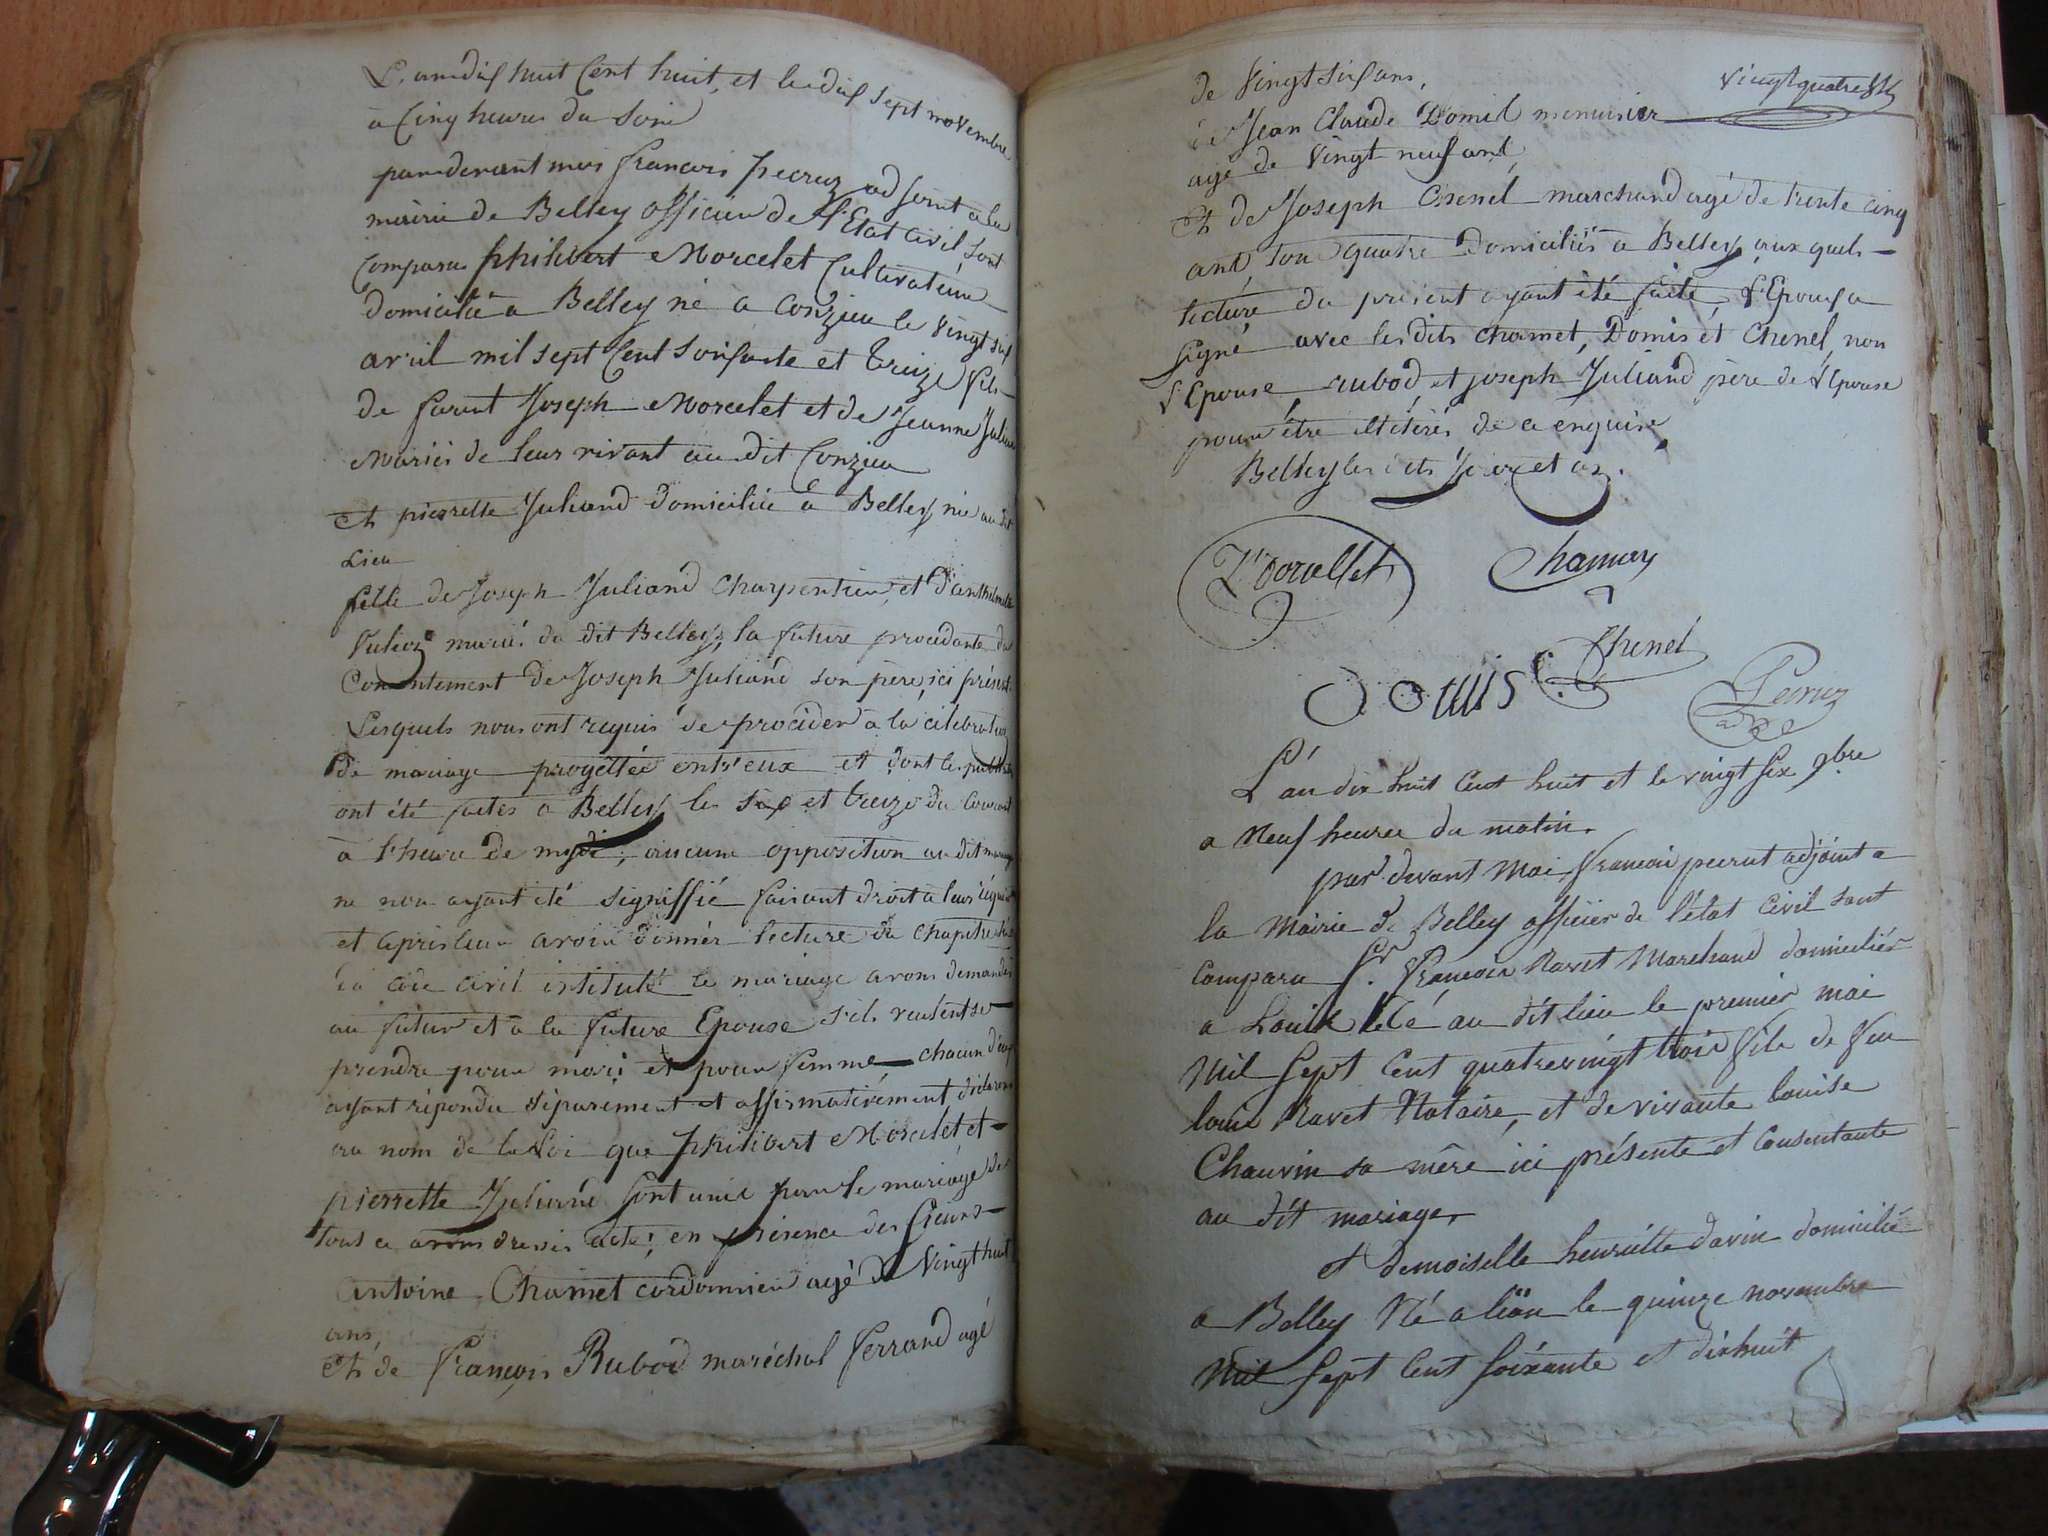 L'an dix huit Cent huit, et le dix sept novembre
a Cinq heures du Soir
pardevant moi françois pecruz adjoint a la
mairie de Belley officier de l'Etat civil Sont
Comparu philibert Morcelet Cultivateur
domicilié a Belley né a Conzieu le vingt six
avril mil sept Cent Soixante et treize fils
de favent Joseph Morcelet et de Jeanne
Mariés de leur vivant au dit Conzieu
Et pierrette Juliand domiciliée a Belley née au dit
Lieu
fille de Joseph Juliand Charpentier, et d'anthelmette
mariés du dit Belley, la future procédante du
Consentement de Joseph Juliand son père, ici présent.
Lesquels nous ont requis de procéder a la célébration
de mariage progettée entr'eux et dont les
ont été faites a Belley les six et treize du Courant
a l'heure de midi, aucune opposition au dit mariage
ne nous ayant été signiffié faisant droit a leur
et après leur avoir donner lecture du Chapitre
du Code Civil intitulé le mariage avons demandé
au futur et a la future Epouse s'ils veulent se
prendre pour mari et pour femme, chacun d'eux
ayant répondu séparement et affirmativement déclarons
au nom de la Loi que philibert Morcelet et
pierrette Juliand sont unis par le mariage de
tout ce avons dressé acte; en présence des Sieurs
antoine Chamet cordonnier agé de Vingt huit
ans,
Et de françois Rubod maréchal ferrand agé
vingt quatre
de Vingt six ans,
de Jean Claude Domil menuisier
agé de Vingt neuf ans
Et de Joseph Chenel marchand agé de trente cinq
ans, tou quatre domiciliés a Belley, aux quels
lecture du présent ayant été faite, l'Epoux a
signé avec les dits Chamet, Domis et Chenel, non
l'Epouse Rubod et joseph Juliand père de l'Epouse
pour être illétérés de ce enquise
Belley les dits Jour et an.
Chamay
Chenel
Perruz
L'an dix huit Cent huit et le vingt six 9bre
a Neuf heures du matin.
par devant Moi francois pecrut adjoint a
la Mairie de Belley officier de l'état Civil sont
Comparu Sr. francois Ravet Marchand domicilié
a Né au dit lieu le premier mai
Mil Sept Cent quatrevingt trois fils de feu
louis Ravet Notaire, et de vivante louise
Chauvin sa mére ici présente et Consentante
au dit mariage,
et demoiselle henriette davin domicilié
a Belley Né a lion le quinze novembre
Mil Sept Cent Soixante et dixhuit